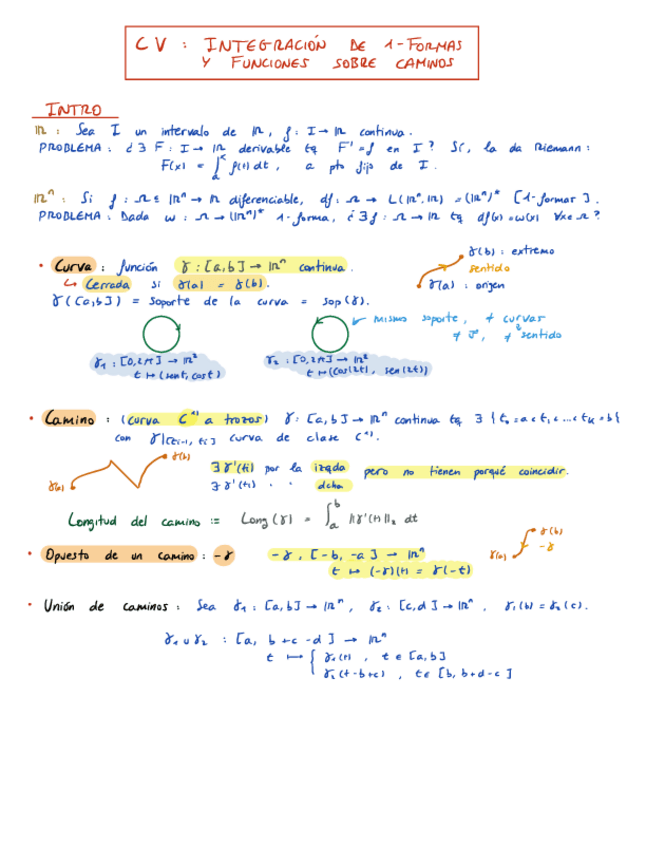 CV : INTEGRACIÓN DE 1-FORMAS
Y FUNCIONES SOBRE CAMINOS
INTRO
ℝ : Sea I un intervalo de ℝ, f: I → ℝ continua.
PROBLEMA : ¿∃ F: I → ℝ derivable tq F' = f en I? Sí, la da Riemann:
F(x) = ∫ₐˣ f(t) dt, a pto fijo de I.
ℝⁿ : Si f: Ω ⊆ ℝⁿ → ℝ diferenciable, df: Ω → L(ℝⁿ, ℝ) = (ℝⁿ)* [1-formas].
PROBLEMA : Dada ω: Ω → (ℝⁿ)* 1-forma, ¿∃ f: Ω → ℝ tq df(x) = ω(x) ∀x∈Ω?
γ(b) : extremo
• Curva : función γ: [a,b] → ℝⁿ continua.
sentido
↳ Cerrada si γ(a) = γ(b).
γ(a) : origen
γ([a,b]) = soporte de la curva = sop(γ).
mismo soporte, ≠ curvas
≠ sentido
γ₁ : [0,2π] → ℝ²
t ↦ (sent, cost)
γ₂ : [0,2π] → ℝ²
t ↦ (cos(2t), sen(2t))
• Camino : (curva C¹⁾ a trozos) γ: [a,b] → ℝⁿ continua tq ∃ {t₀=a<t₁<...<tₖ=b}
con γ|[tᵢ₋₁, tᵢ] curva de clase C¹⁾.
γ(b)
γ(a)
∃ γ'(tᵢ) por la izqda pero no tienen porqué coincidir.
∃ γ'(tᵢ) " " dcha
Longitud del camino := Long(γ) = ∫ₐᵇ ||γ'(t)||₂ dt
• Opuesto de un camino : -γ
-γ, [-b, -a] → ℝⁿ
t ↦ (-γ)(t) = γ(-t)
γ(b)
-γ
γ(a)
• Unión de caminos : Sea γ₁ : [a,b] → ℝⁿ, γ₂ : [c,d] → ℝⁿ, γ₁(b) = γ₂(c).
γ₁ ∪ γ₂ : [a, b+c-d] → ℝⁿ
t ↦ { γ₁(t), t ∈ [a,b]
γ₂(t-b+c), t ∈ [b, b+d-c]